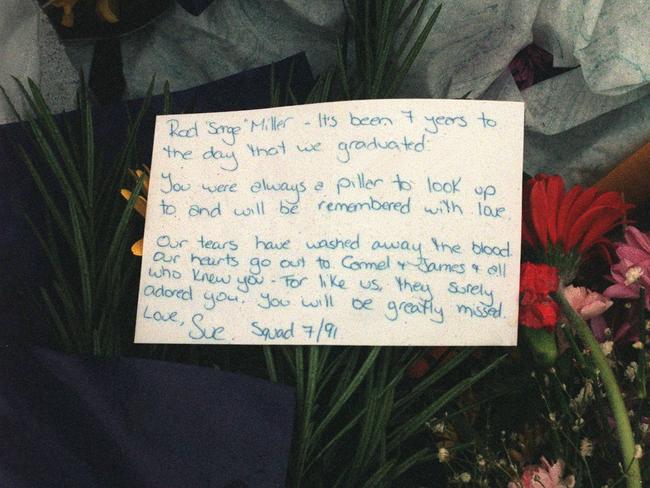 Rod "Serge" Miller - It's been 7 years to
the day that we graduated.
You were always a piller to look up
to and will be remembered with love.
Our tears have washed away the blood.
Our hearts go out to Carmel + James + all
who knew you. For like us, they surely
adored you. You will be greatly missed.
Love, Sue. Squad 7/91